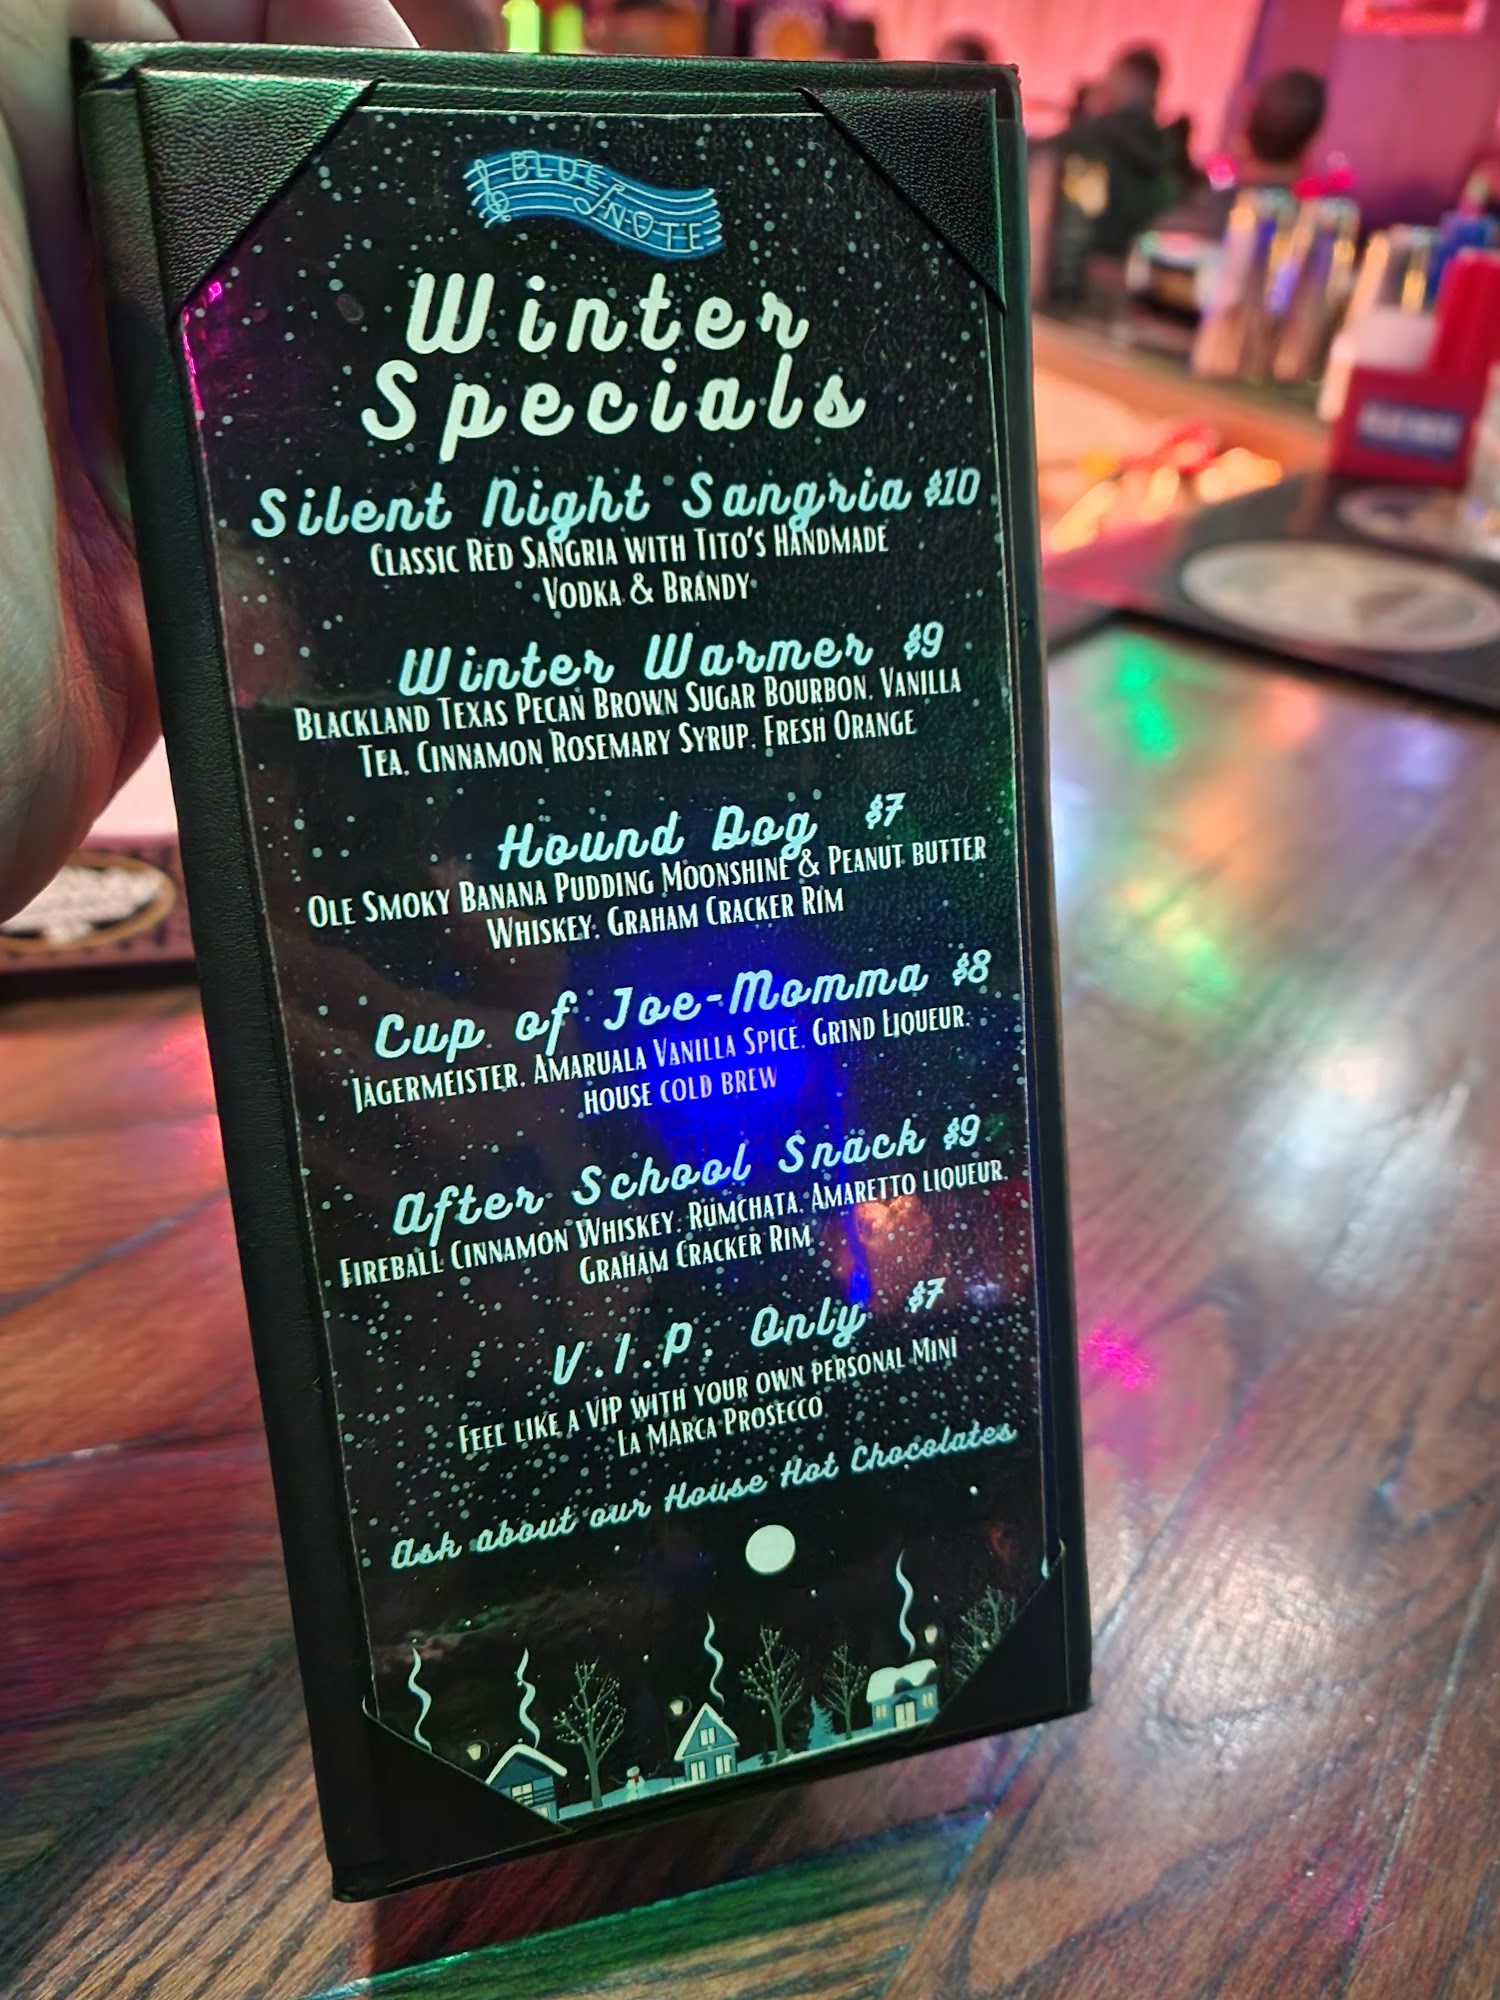 BLUE NOTE
Winter
Specials
Silent Night Sangria $10
CLASSIC RED SANGRIA WITH TITO'S HANDMADE
VODKA & BRANDY
Winter Warmer $9
BLACKLAND TEXAS PECAN BROWN SUGAR BOURBON, VANILLA
TEA, CINNAMON ROSEMARY SYRUP, FRESH ORANGE
Hound Dog $7
OLE SMOKY BANANA PUDDING MOONSHINE & PEANUT BUTTER
WHISKEY, GRAHAM CRACKER RIM
Cup of Joe-Momma $8
JAGERMEISTER, AMARUALA VANILLA SPICE, GRIND LIQUEUR,
HOUSE COLD BREW
After School Snack $9
FIREBALL CINNAMON WHISKEY, RUMCHATA, AMARETTO LIQUEUR,
GRAHAM CRACKER RIM
V.I.P. Only $7
FEEL LIKE A VIP WITH YOUR OWN PERSONAL MINI
LA MARCA PROSECCO
Ask about our House Hot Chocolates